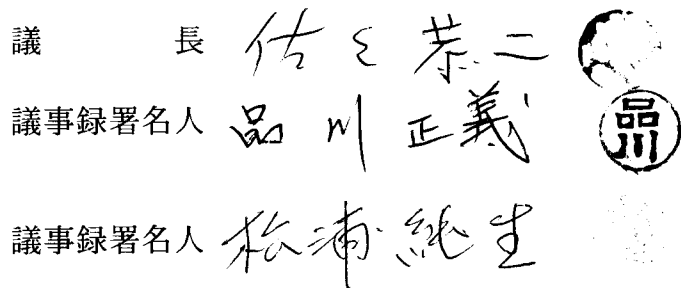 議長 佐々恭二
議事録署名人 品川正義 品川
議事録署名人 松浦純生